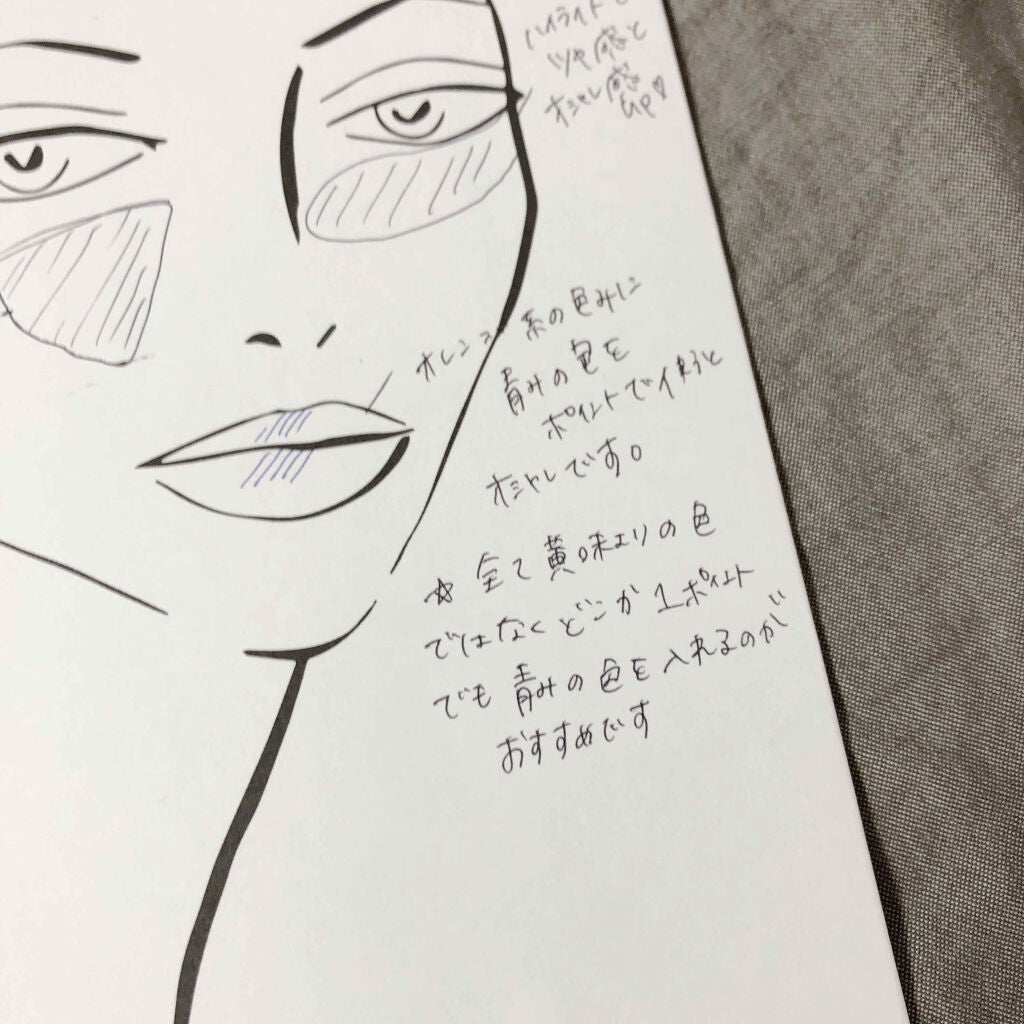 ハイライトで
ツヤ感と
オシャレ感
UP♡
オレンジ系の色みに
青みの色を
ポイントで使うと
オシャレです。
☆全て黄味よりの色
ではなくどこか1ポイント
でも青みの色を入れるのが
おすすめです